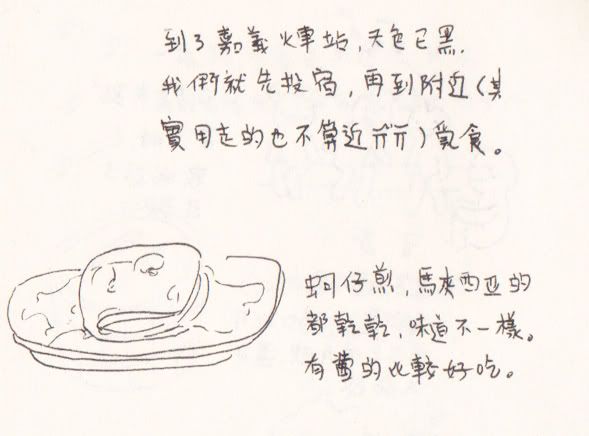 到了嘉義火車站，天色已黑，
我們就先投宿，再到附近（其
實用走的也不算近＝＝）覓食。
蚵仔煎，馬來西亞的
都乾乾，味道不一樣。
有醬的比較好吃。